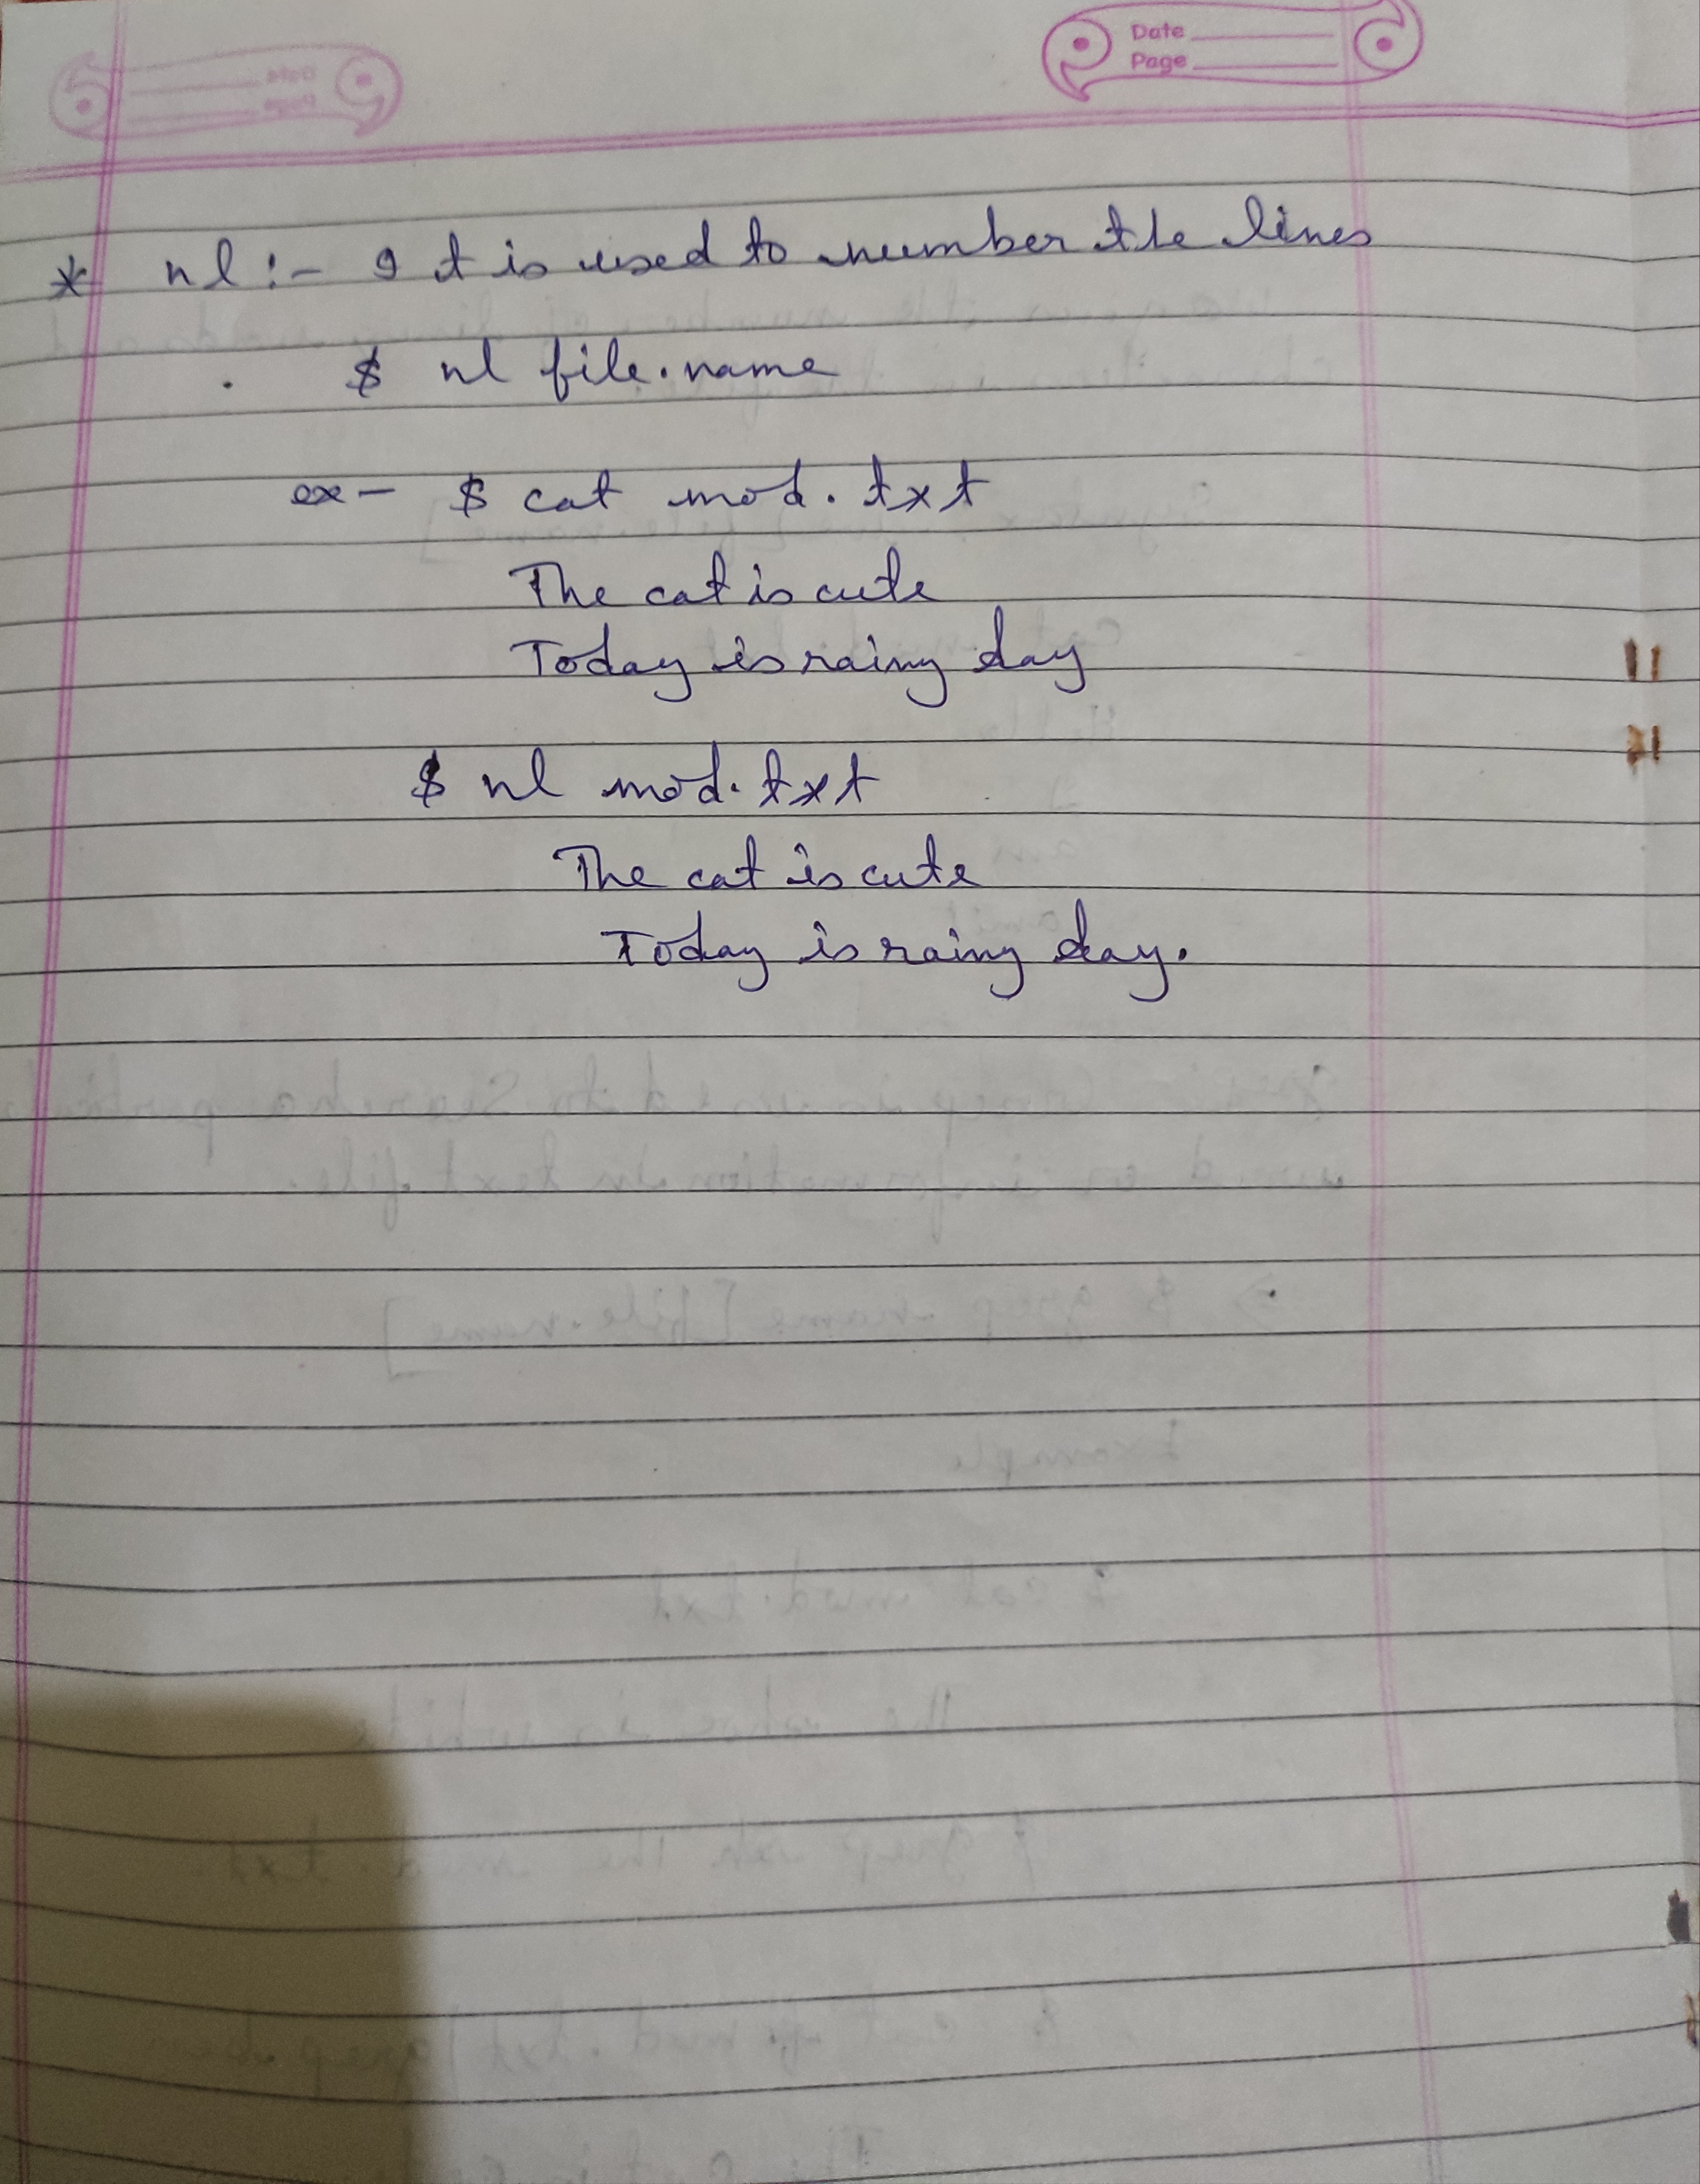 Date
Page
* nl :- It is used to number the lines
$ nl file.name
ex - $ cat mod.txt
The cat is cute
Today is rainy day
$ nl mod.txt
The cat is cute
Today is rainy day.